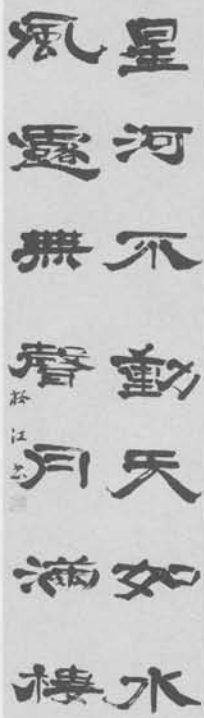 星河不動天如水
風露無聲月滿樓